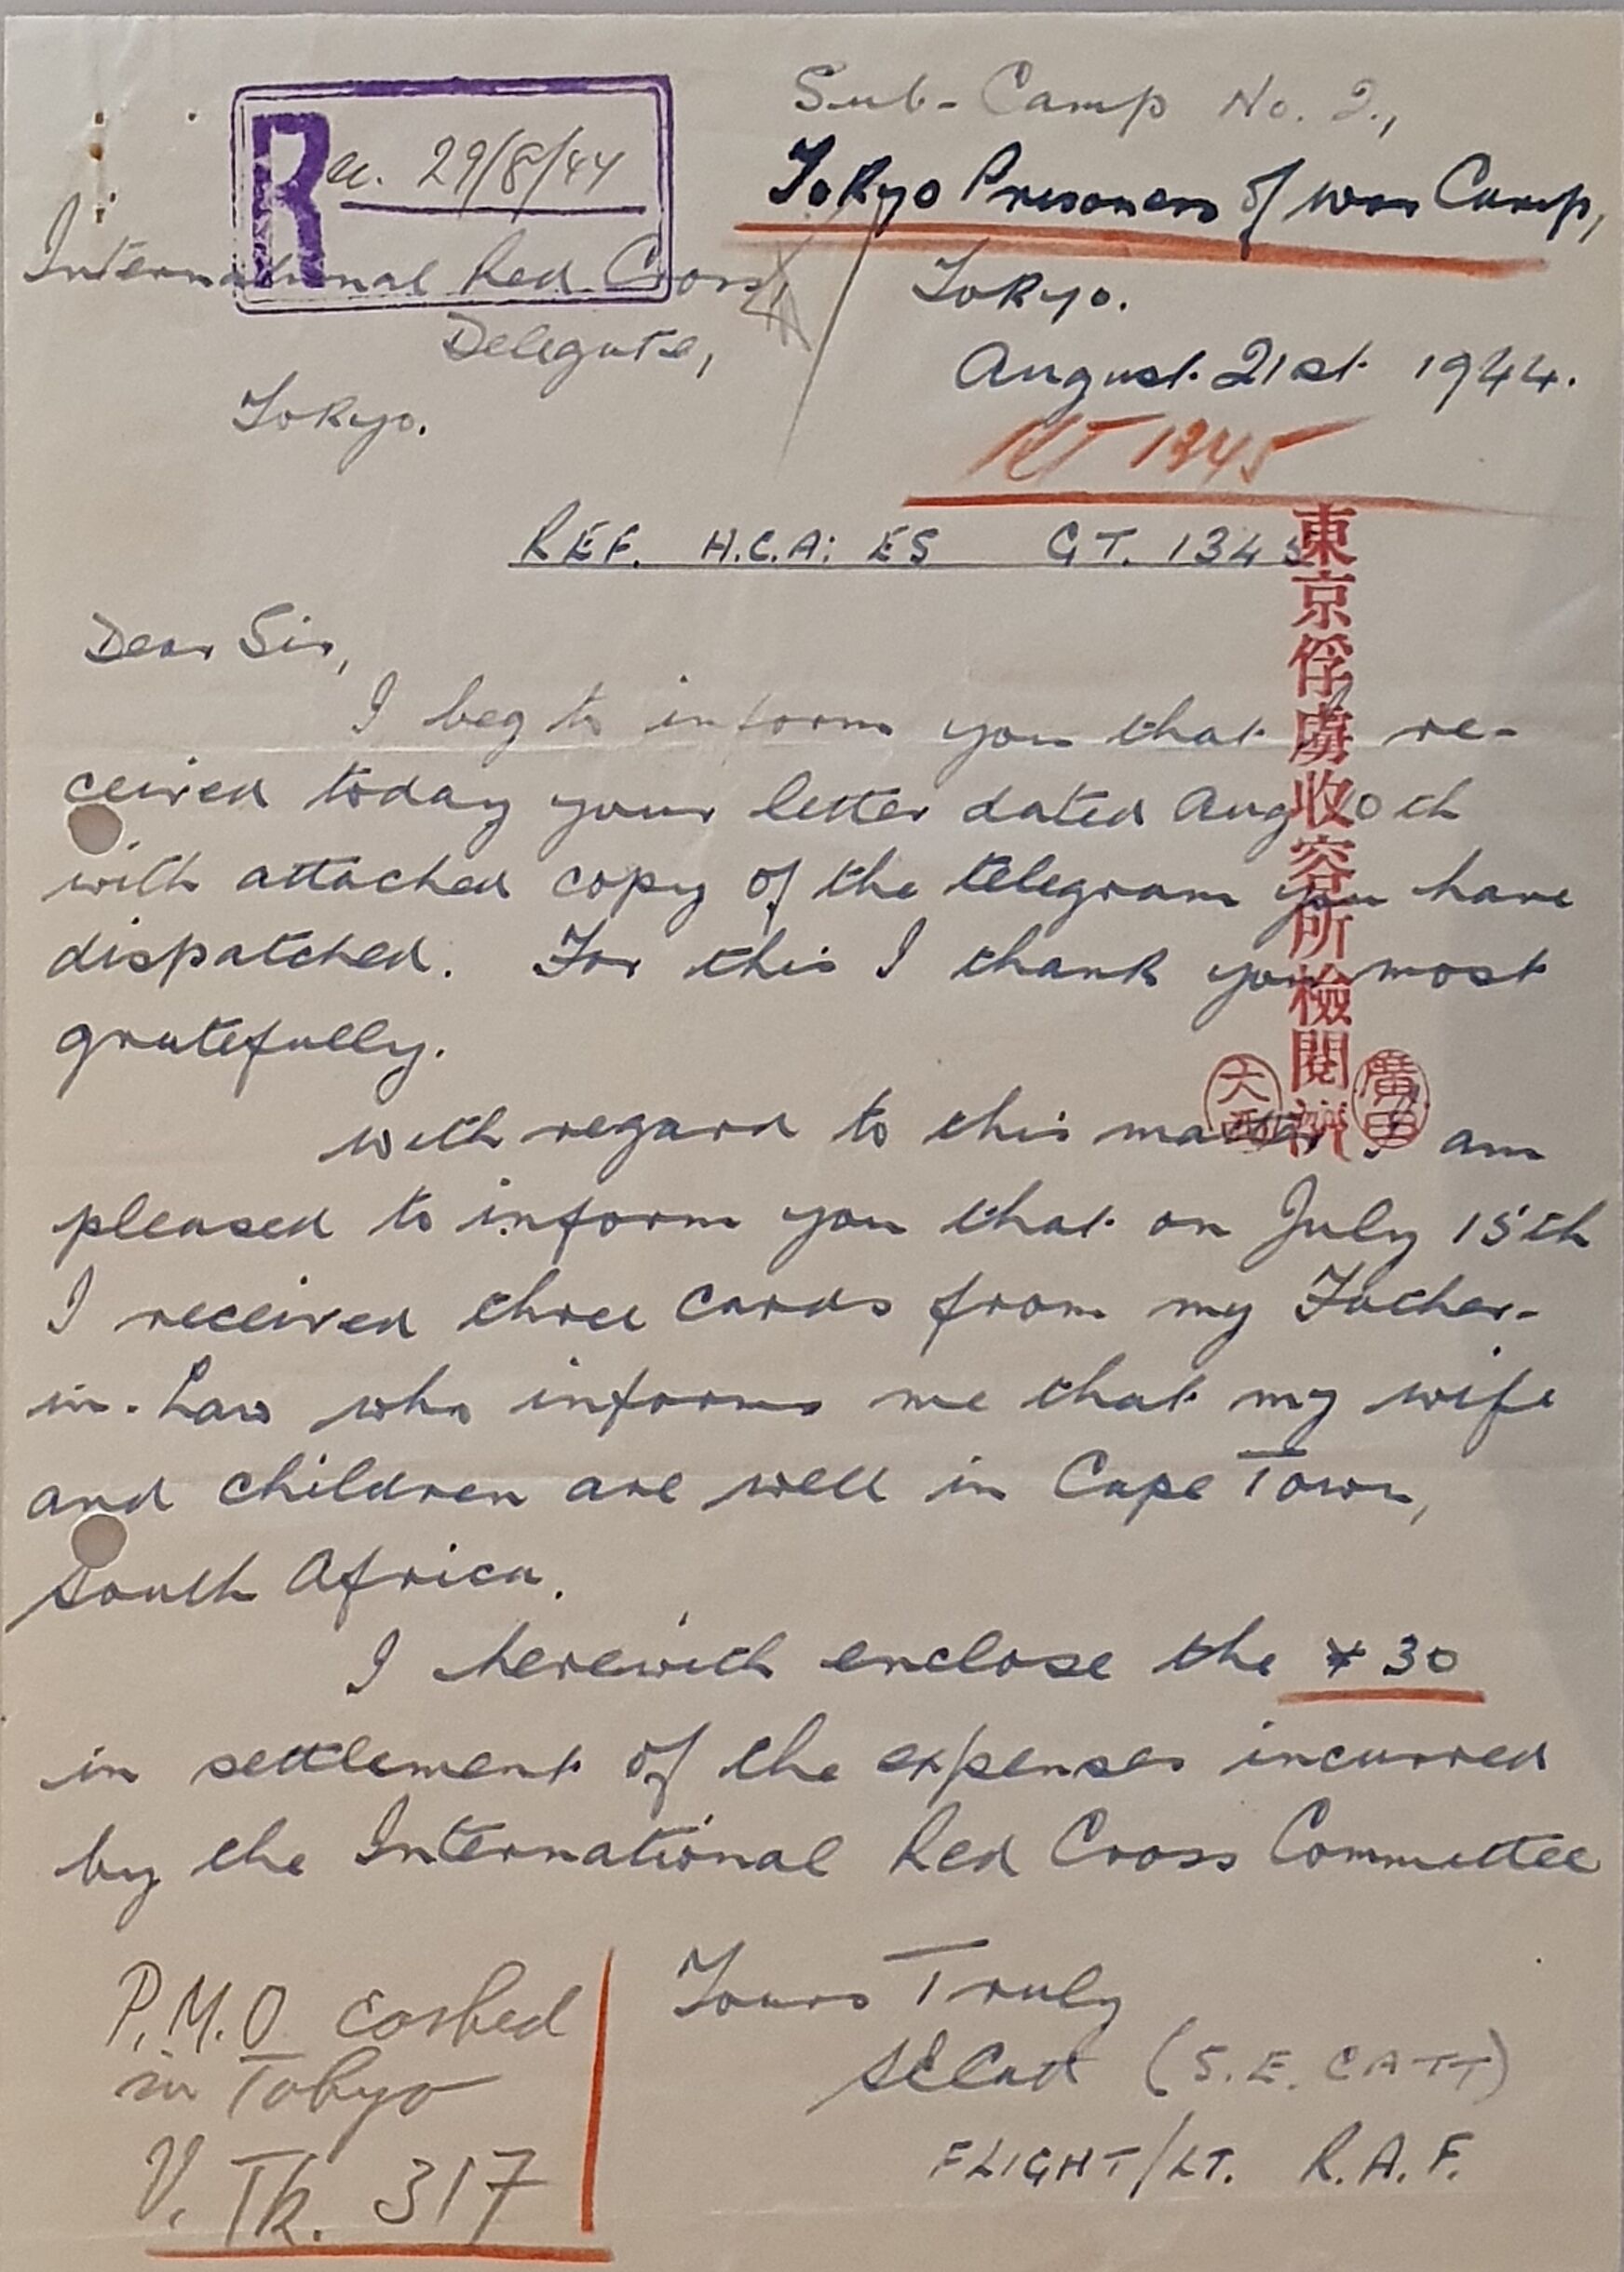 Sub-Camp No. 2.,
Rec. 29/8/44
Tokyo Prisoners of War Camp,
International Red Cross,
Tokyo.
Delegate,
August 21st 1944.
Tokyo.
1345
REF. H.C.A: ES GT. 1345
東京俘虜收容所檢閲濟
Dear Sir,
I beg to inform you that I re-
ceived today your letter dated Aug 10th
with attached copy of the telegram you have
dispatched. For this I thank you most
gratefully.
大西
廣田
With regard to this matter, I am
pleased to inform you that on July 15th
I received three cards from my Father-
in-Law who informs me that my wife
and children are well in Cape Town,
South Africa.
I herewith enclose the ¥ 30
in settlement of the expenses incurred
by the International Red Cross Committee
Yours Truly
SECatt (S.E. CATT)
FLIGHT/LT. R.A.F.
P.M.O cashed
in Tokyo
V. Tk. 317